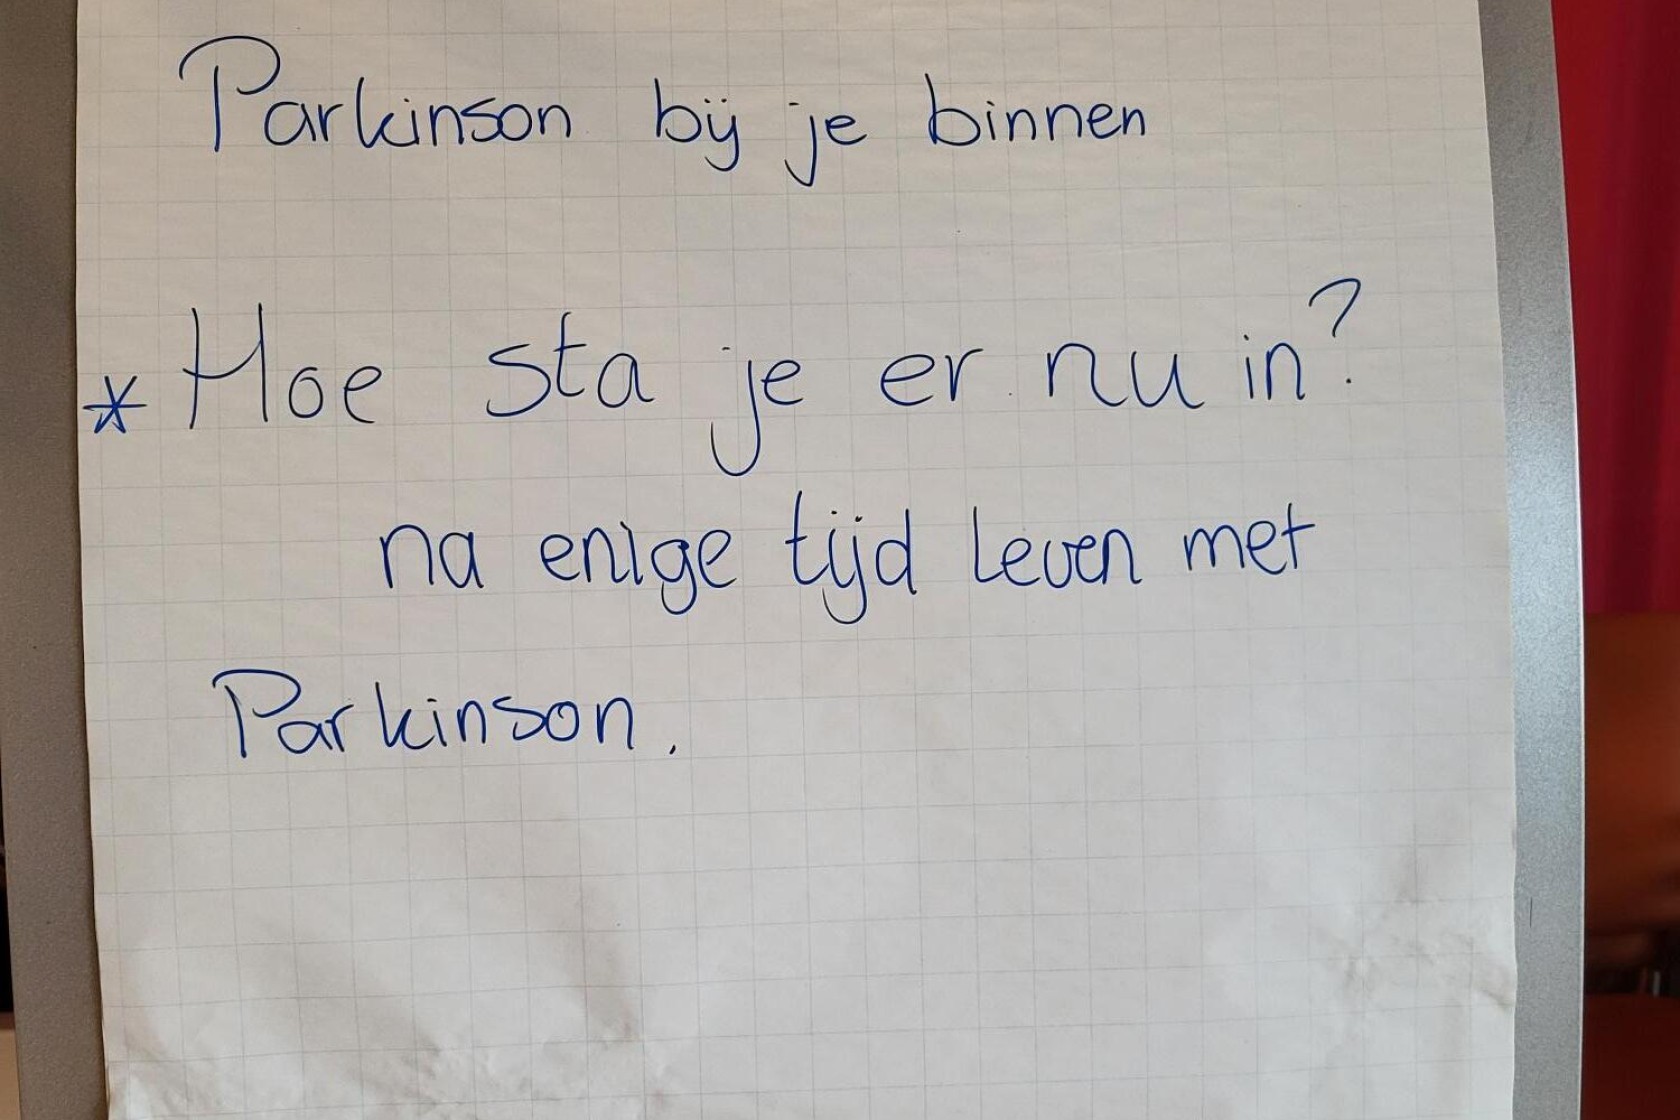 Parkinson bij je binnen
* Hoe sta je er nu in?
na enige tijd leven met
Parkinson.